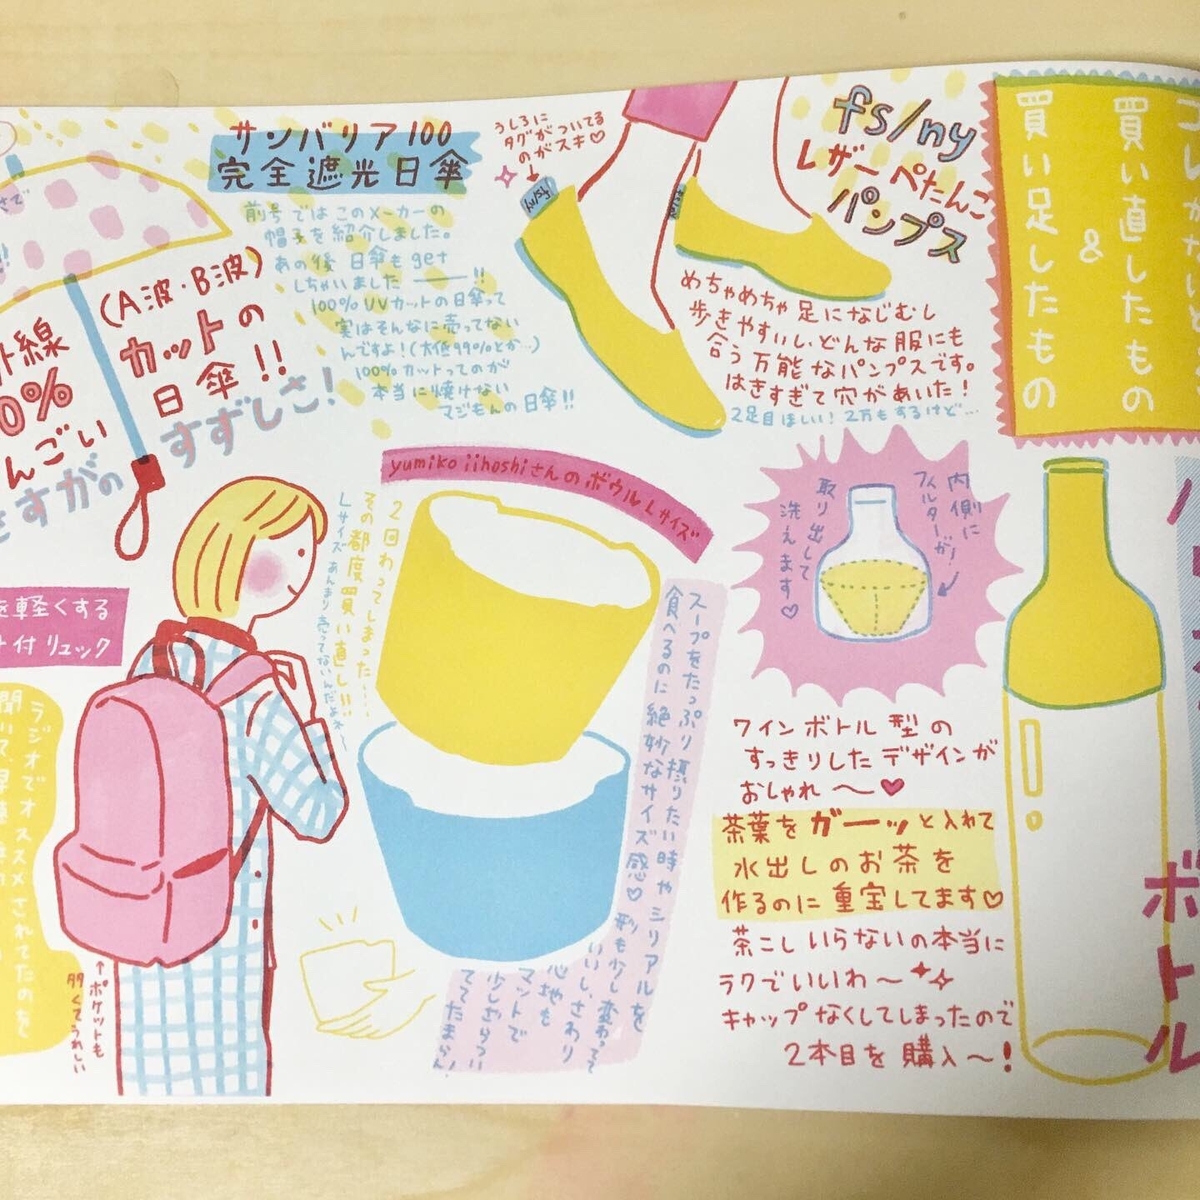 買い直したもの
&
買い足したもの
fs/ny
レザーぺたんこ
パンプス
うしろに
タグがついてる
のがスキ♡
fs/ny
めちゃめちゃ足になじむし
歩きやすいし、どんな服にも
合う万能なパンプスです。
はきすぎて穴があいた!
2足目ほしい!2万もするけど…
サンバリア100
完全遮光日傘
前号ではこのメーカーの
帽子を紹介しました。
あの後日傘もget
しちゃいました――!!
100%UVカットの日傘って
実はそんなに売ってない
んですよ!(大低99%とか…)
100%カットってのが
本当に焼けない
マジもんの日傘!!
(A波・B波)
カットの
日傘!!
外線
0%
んごい
さすがの
すずしさ!
ボトル
内側に
フィルターが!
取り出して
洗えます♡
ワインボトル型の
すっきりしたデザインが
おしゃれ〜♥
茶葉をガーッと入れて
水出しのお茶を
作るのに重宝してます♡
茶こしいらないの本当に
ラクでいいわ〜
キャップなくしてしまったので
2本目を購入〜!
yumiko iihoshiさんのボウルLサイズ
スープをたっぷり摂りたい時やシリアルを
食べるのに絶妙なサイズ感♡形も少し変わってて
いいし、さわり
心地も
マットで
少しざらつい
ててたまらん!
2回わってしまった…
その都度買い直し!!
Lサイズあんまり売ってないんだよね〜
を軽くする
付リュック
ラジオでオススメされてたのを
聞いて、早速
↑ポケットも
多くてうれしい